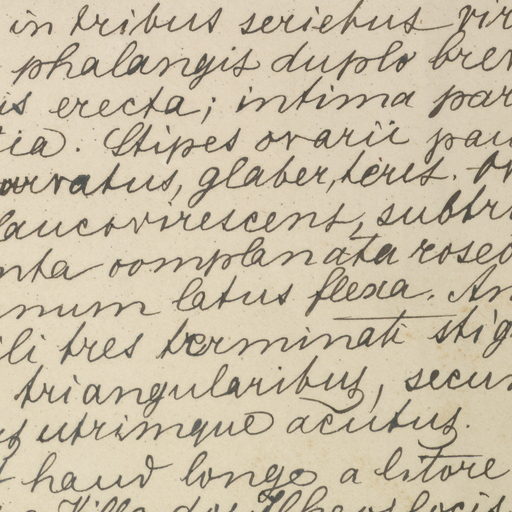 in tribus seriebus vir
phalangis duplo brev
is erecta; intima par
tia. Stipes ovarii pau
arvatus, glaber, teris. Ov
laucovirescent, subtri
nta complanata roseo
num latus flexa. An
ili tres terminati stig
triangularibus, secun
utrimque acutus.
haud longe a litore
Villa dos Ilheos locis